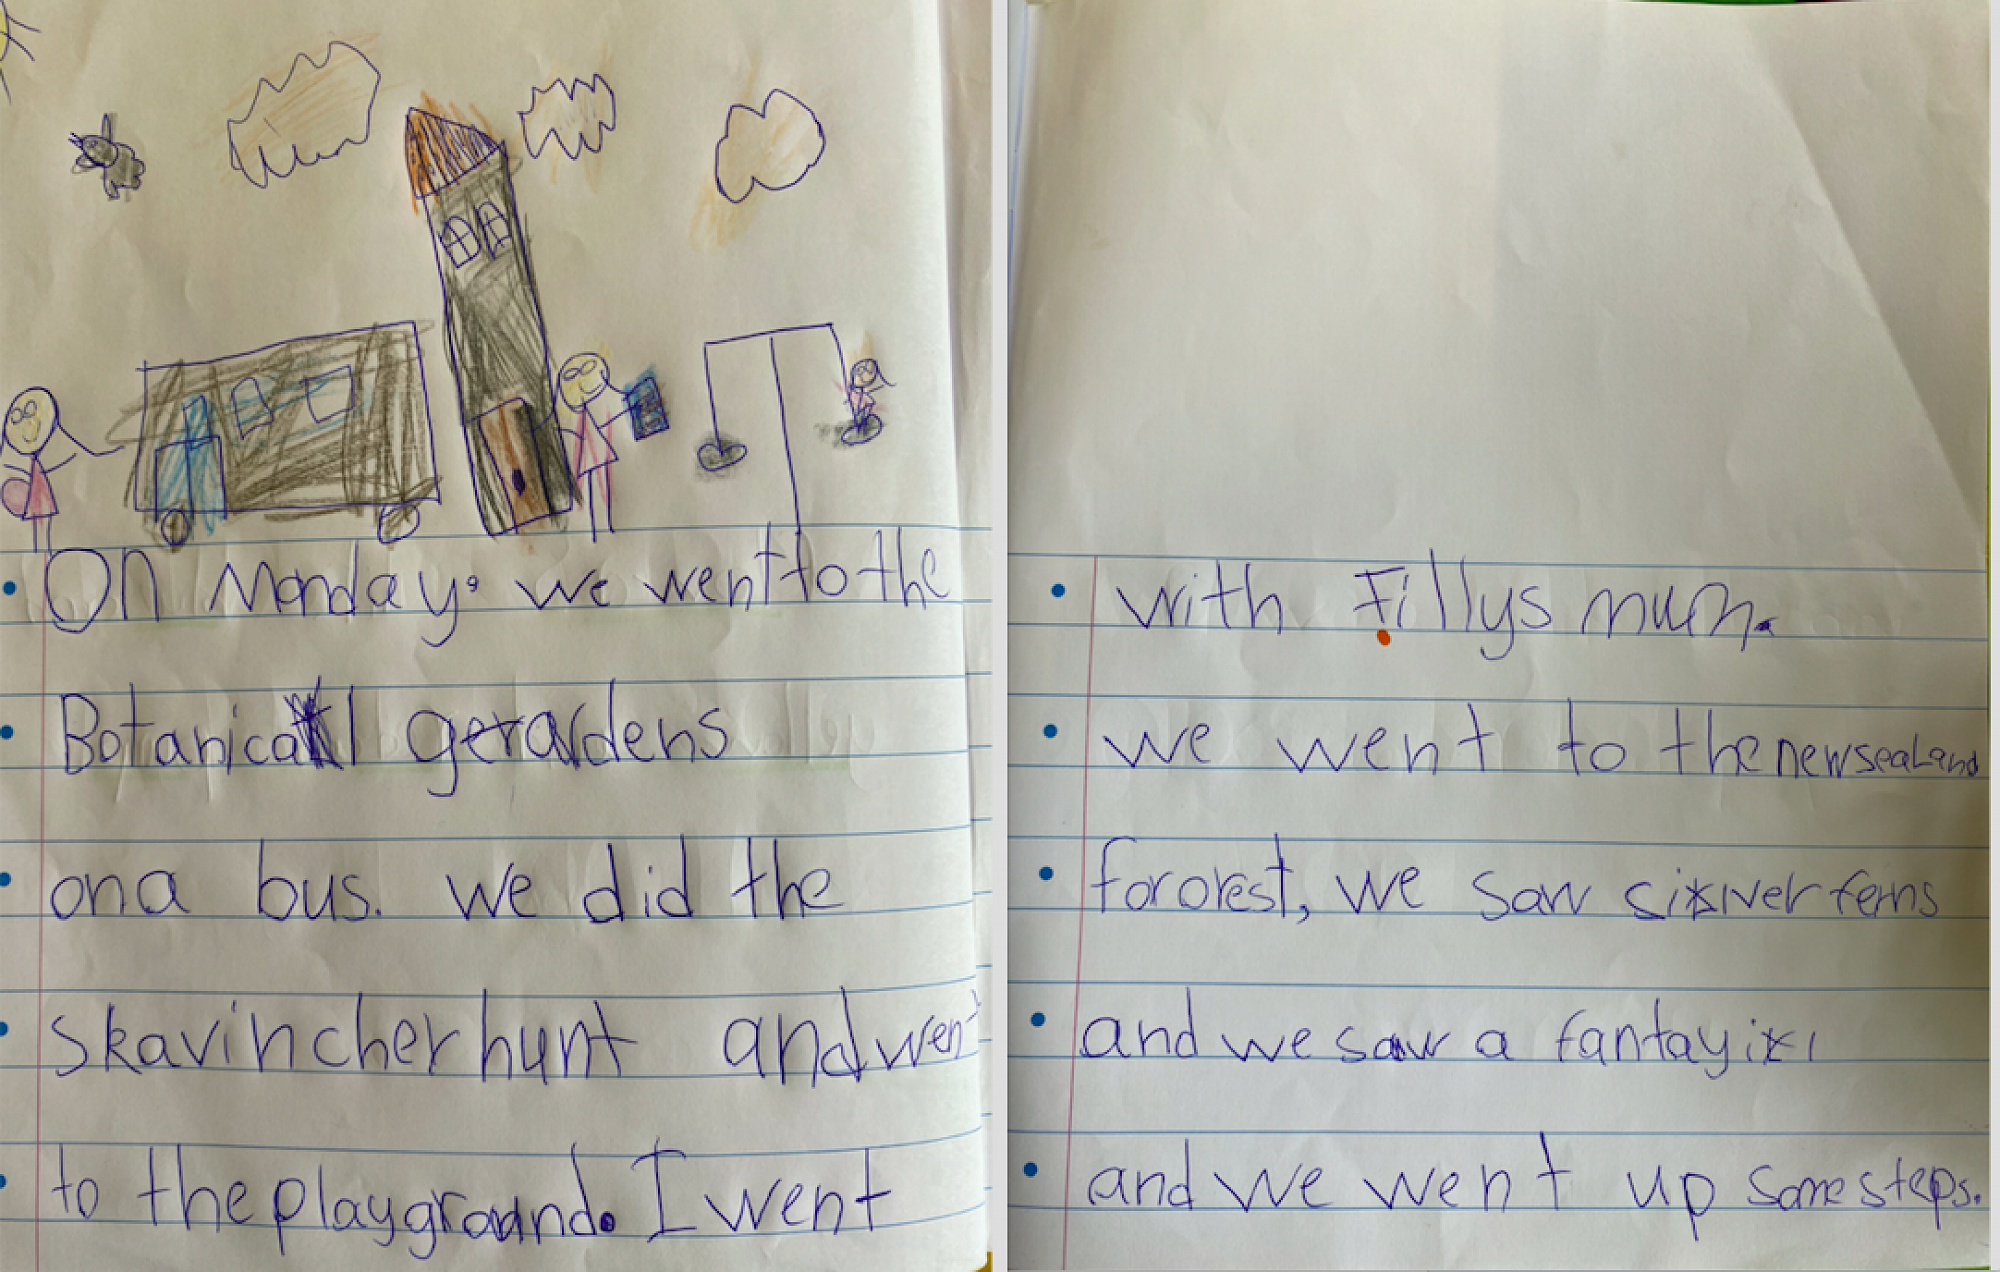 On Monday. we went to the
Botanical gerardens
on a bus. we did the
skavincher hunt and went
to the playground. I went
with Tillys mum.
we went to the new sealand
fororest, we saw silver ferns
and we saw a fantayil
and we went up some steps.